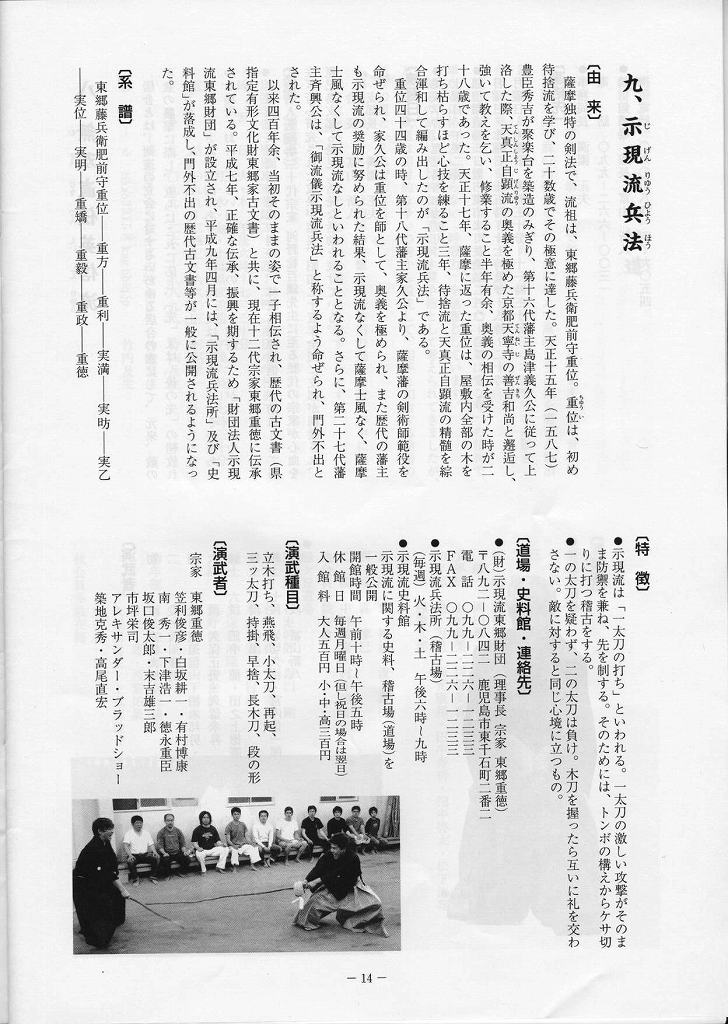 九、示現流兵法
じげんりゅうひょうほう
〔由来〕
薩摩独特の剣法で、流祖は、東郷藤兵衛肥前守重位。重位は、初め
ちゅうい
待捨流を学び、二十数歳でその極意に達した。天正十五年（一五八七）
豊臣秀吉が聚楽台を築造のみぎり、第十六代藩主島津義久公に従って上
洛した際、天真正自顕流の奥義を極めた京都天寧寺の善吉和尚と邂逅し、
強いて教えを乞い、修業すること半年有余、奥義の相伝を受けた時が二
十八歳であった。天正十七年、薩摩に返った重位は、屋敷内全部の木を
打ち枯らすほど心技を練ること三年、待捨流と天真正自顕流の精髄を綜
合渾和して編み出したのが「示現流兵法」である。
重位四十四歳の時、第十八代藩主家久公より、薩摩藩の剣術師範役を
命ぜられ、家久公は重位を師として、奥義を極められ、また歴代の藩主
も示現流の奨励に努められた結果、示現流なくして薩摩士風なく、薩摩
士風なくして示現流なしといわれることとなる。さらに、第二十七代藩
主斉興公は、「御流儀示現流兵法」と称するよう命ぜられ、門外不出と
された。
以来四百年余、当初そのままの姿で一子相伝され、歴代の古文書（県
指定有形文化財東郷家古文書）と共に、現在十二代宗家東郷重徳に伝承
されている。平成七年、正確な伝承、振興を期するため「財団法人示現
流東郷財団」が設立され、平成九年四月には、「示現流兵法所」及び「史
料館」が落成し、門外不出の歴代古文書等が一般に公開されるようになっ
た。
〔系譜〕
東郷藤兵衛肥前守重位――重方――重利――実満――実昉――実乙
――実位――実明――重矯――重毅――重政――重徳
〔特徴〕
●示現流は「一太刀の打ち」といわれる。一太刀の激しい攻撃がそのま
ま防禦を兼ね、先を制する。そのためには、トンボの構えからケサ切
りに打つ稽古をする。
●一の太刀を疑わず、二の太刀は負け。木刀を握ったら互いに礼を交わ
さない。敵に対すると同じ心境に立つもの。
〔道場・史料館・連絡先〕
●（財）示現流東郷財団（理事長 宗家 東郷重徳）
〒八九二―〇八四二 鹿児島市東千石町二番二
電話 〇九九―二二六―一二三三
FAX 〇九九―二二六―一二三三
●示現流兵法所（稽古場）
（毎週）火・木・土 午後六時～九時
●示現流史料館
示現流に関する史料、稽古場（道場）を
一般公開
開館時間 午前十時～午後五時
休館日 毎週月曜日（但し祝日の場合は翌日）
入館料 大人五百円 小・中・高三百円
〔演武種目〕
立木打ち、燕飛、小太刀、再起、
三ッ太刀、持掛、早捨、長木刀、段の形
〔演武者〕
宗家 東郷重徳
笠利俊彦・白坂耕一・有村博康
南秀一・下津浩一・徳永重臣
坂口俊太郎・末吉雄三郎
市坪栄司
アレキサンダー・ブラッドショー
築地克秀・高尾直宏
― 14 ―